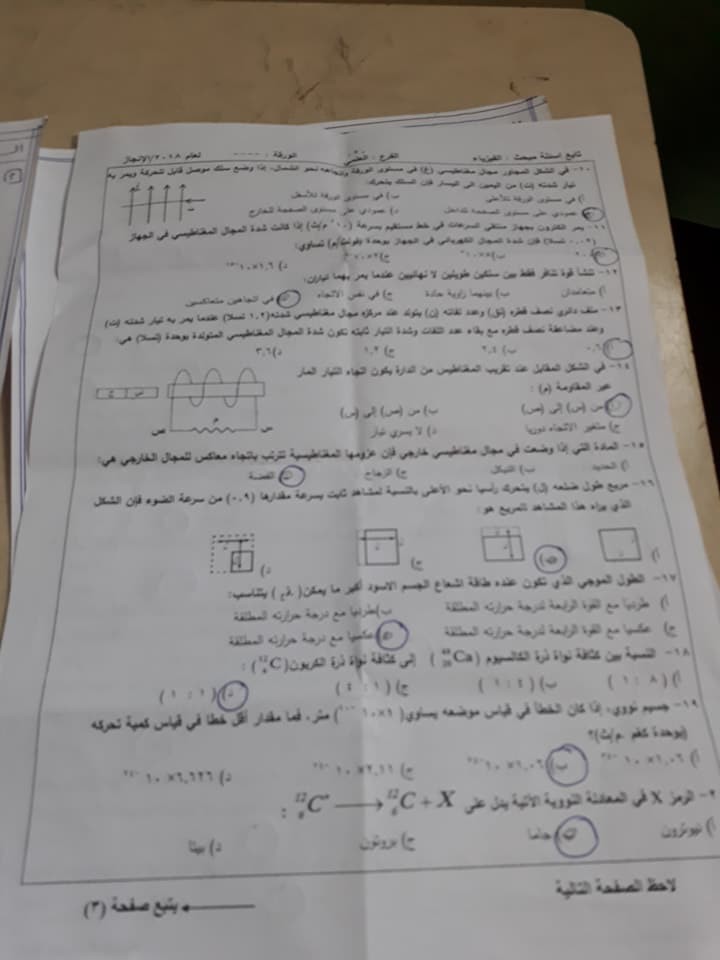 تابع أسئلة مبحث : الفيزياء الفرع : العلمي الورقة : ---- لعام ٢٠١٨/الإنجاز
١٠- في الشكل المجاور مجال مغناطيسي (غ) في مستوى الورقة واتجاهه نحو الشمال، إذا وضع سلك موصل قابل للحركة ويمر به
تيار شدته (ت) من اليمين الى اليسار فإن السلك يتحرك:
أ) في مستوى الورقة للأعلى ب) في مستوى الورقة للأسفل
ج) عمودي على مستوى الصفحة للداخل د) عمودي على مستوى الصفحة للخارج
١١- يمر الكترون بجهاز منتقى السرعات في خط مستقيم بسرعة م/ث) إذا كانت شدة المجال المغناطيسي في الجهاز
تسلا) فإن شدة المجال الكهربائي في الجهاز بوحدة (فولت/م) تساوي:
١٢- تنشأ قوة تنافر فقط بين سلكين طويلين لا نهائيين عندما يمر بهما تياران:
أ) متعامدان ب) بينهما زاوية حادة ج) في نفس الاتجاه د) في اتجاهين متعاكسين
١٣- ملف دائري نصف قطره (نق) وعدد لفاته (ن) يتولد عند مركزه مجال مغناطيسي شدته (١,٢ تسلا) عندما يمر به تيار شدته (ت)
وعند مضاعفة نصف قطره مع بقاء عدد اللفات وشدة التيار ثابته تكون شدة المجال المغناطيسي المتولدة بوحدة (تسلا) هي:
أ) ٠,٦ ب) ٢,٤ ج) ١,٢ د) ٣,٦
١٤- في الشكل المقابل عند تقريب المغناطيس من الدارة يكون اتجاه التيار المار
عبر المقاومة (م) :
أ) من (س) إلى (ص) ب) من (ص) إلى (س)
ج) متغير الاتجاه دوريا د) لا يسري تيار
ص م س
١٥- المادة التي إذا وضعت في مجال مغناطيسي خارجي فإن عزومها المغناطيسية تترتب باتجاه معاكس للمجال الخارجي هي:
أ) الحديد ب) النيكل ج) الزجاج د) الفضة
١٦- مربع طول ضلعه (ل) يتحرك رأسيا نحو الأعلى بالنسبة لمشاهد ثابت بسرعة مقدارها (٠,٩) من سرعة الضوء فإن الشكل
الذي يراه هذا المشاهد للمربع هو:
أ) ب) ج) د)
١٧- الطول الموجي الذي تكون عنده طاقة اشعاع الجسم الاسود أكبر ما يمكن يتناسب:
أ) طرديا مع القوة الرابعة لدرجة حرارته المطلقة ب) طرديا مع درجة حرارته المطلقة
ج) عكسيا مع القوة الرابعة لدرجة حرارته المطلقة د) عكسيا مع درجة حرارته المطلقة
١٨- النسبة بين كثافة نواة ذرة الكالسيوم (Ca) إلى كثافة نواة ذرة الكربون (¹²₆C) :
أ) (٨ : ١) ب) (٤ : ١) ج) (١ : ٤) د) (١ : ١)
١٩- جسيم نووي، إذا كان الخطأ في قياس موضعه يساوي متر، فما مقدار أقل خطأ في قياس كمية تحركه
(بوحدة كغم .م/ث)؟
٢- الرمز X في المعادلة النووية الآتية يدل على ¹²₆C* ⟶ ¹²₆C + X :
أ) نيوترون ب) جاما ج) بروتون د) بيتا
لاحظ الصفحة التالية
يتبع صفحة (٣)